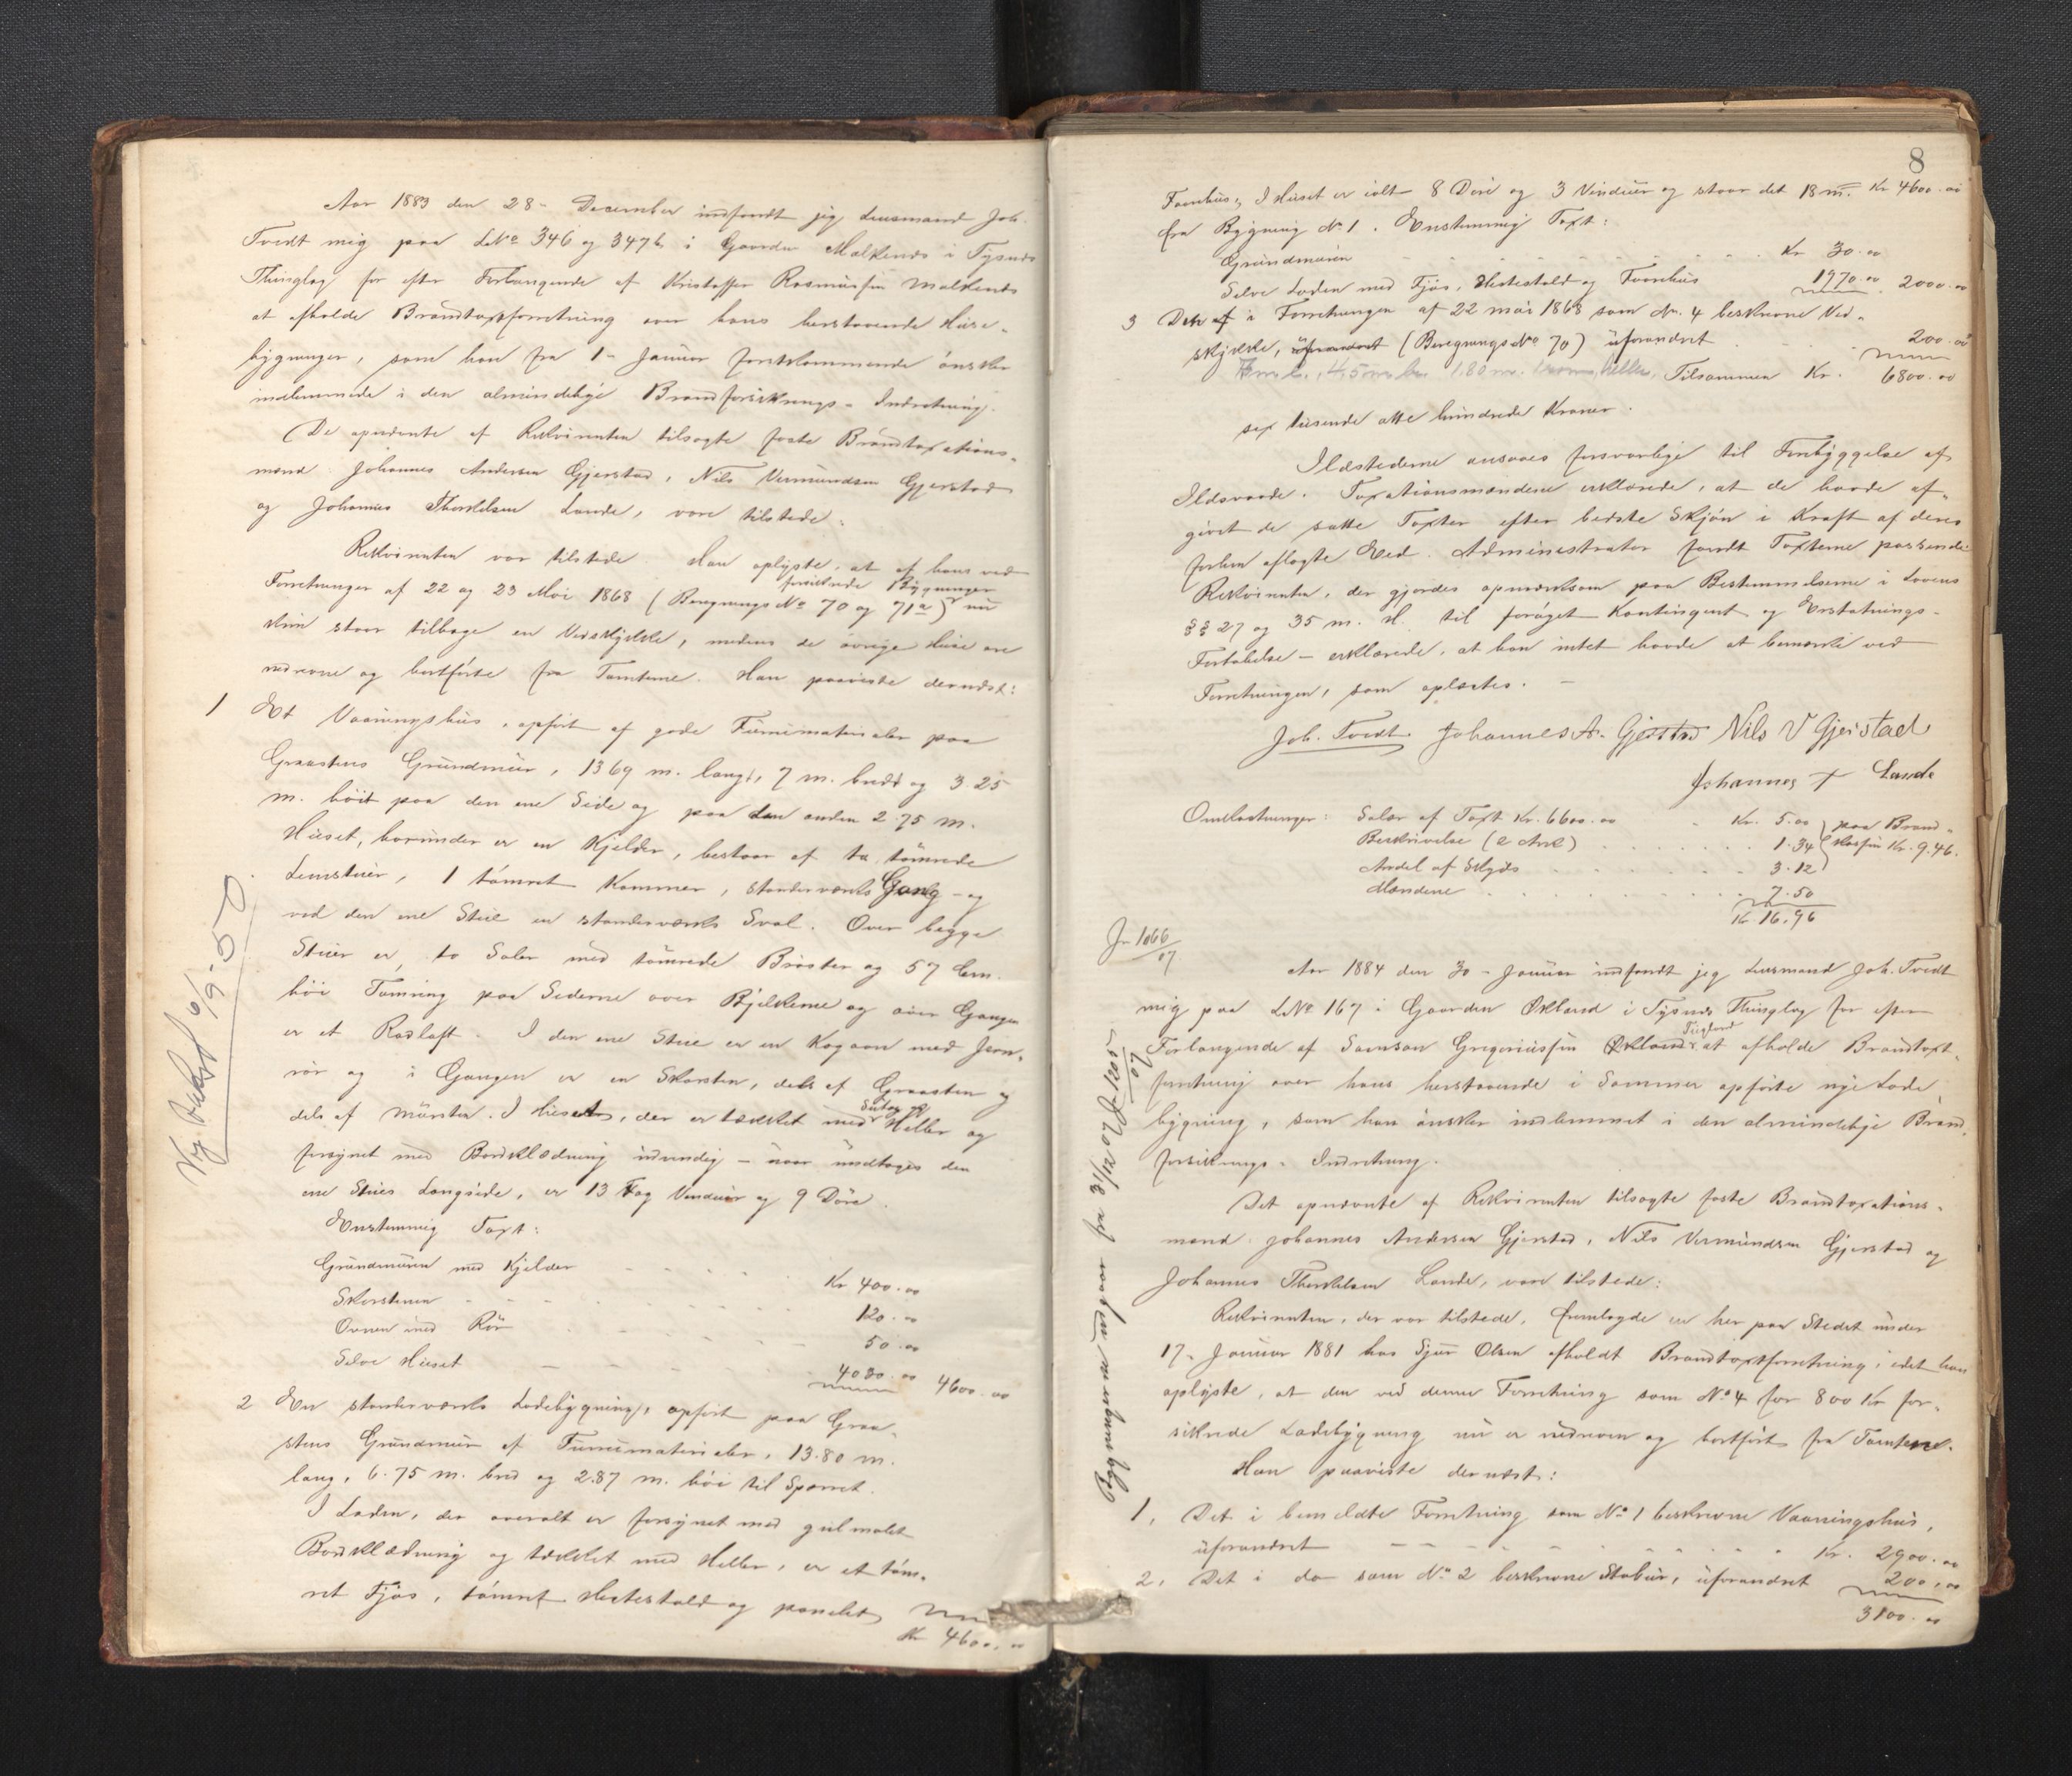 Aar 1883 den 28- December indfandt jeg Lensmand Joh.
Tvedt mig paa LNo 346 og 347b i Gaarden Malkenes i Tysnes
Thinglag for efter Forlangende af Kristoffer Rasmussen Malkenes
at afholde Brandtaxtforretning over hans herstaaende Huse-
bygninger, som han fra 1- Januar førstkommende ønsker
indlemmede i den almindelige Brandforsikrings-Indretning.
De opnævnte af Rekvirenten tilsagte faste Brandtaxations-
mænd: Johannes Andersen Gjerstad, Nils Vermundsen Gjerstad
og Johannes Thorkelsen Lande, vare tilstede.
Rekvirenten var tilstede. Han oplyste, at af hans ved
Forretninger af 22 og 23 Mai 1868 (Beregnings No 70 og 71a) forsikrede Bygninger nu
kun staar tilbage en Vedskjykke, medens de øvrige Huse ere
nedrevne og bortførte fra Tomterne. Han paaviste dernæst:
1 Et Vaaningshus, opført af gode Furumaterialer paa
Graastens Grundmur, 13 69 m. langt, 7 m. bredt og 3.25
m. høit paa den ene Side og paa den anden 2.75 m.
Huset, hvorunder er en Kjelder, bestaar af to tømrede
Lemstuer, 1 tømret Kammer, standerværks Gang - og
ved den ene Stue en standerværks Sval. Over begge
Stuer er to Saler med tømrede Brøster og 57 Cm.
høi Tømring paa Siderne over Bjelkerne og over Gangen
er et Radloft. I den ene Stue er en Kogeovn med Jern-
rør og i Gangen er en Skorsten, dels af Graasten og
dels af Mursten. I Huset, der er tækket med Sutag og Heller og
forsynet med Bordklædning udvendig - naar undtages den
ene Stues Langside, er 13 Fag Vinduer og 9 Døre.
Enstemmig Taxt:
Grundmuren med Kjelder Kr 400.00
Skorstenen 120.00
Ovnen med Rør 50.00
Selve Huset 4030.00 4600.00
2 En standerværks Ladebygning, opført paa Graa-
stens Grundmur af Furumaterialer, 13.80 m.
lang, 6.75 m. bred og 2.87 m. høi til Sparret.
I Laden, der overalt er forsynet med gulmalet
Bordklædning og tækket med Heller, er et tøm-
ret Fjøs, tømret Hestestald og panelet
Kr 4600.00
6/9-50
8
Foorhus. I Huset er ialt 8 Døre og 3 Vinduer og staar det 18 m. Kr 4600.00
fra Bygning No 1. Enstemmig Taxt:
Grundmuren Kr 30.00
Selve Laden med Fjøs, Hestestald og Foorhus 1970.00 2000.00
3 Den i Forretningen af 22 mai 1868 som No. 4 beskrevne Ved-
skjykke, uforandret (Beregnings No 70) uforandret 200.00
Tilsammen Kr. 6800.00
sex tusende otte hundrede Kroner.
Ildstederne ansaaes forsvarlige til Forebyggelse af
Ildsvaade. Taxationsmændene erklærede, at de havde af-
givet de satte Taxter efter bedste Skjøn i Kraft af deres
forhen aflagte Eed. Administrator fandt Taxterne passende.
Rekvirenten, der gjordes opmærksom paa Bestemmelserne i Lovens
§§ 27 og 35 m. H. til forøget Kontingent og Erstatnings-
Fortabelse - erklærede, at han intet havde at bemærke ved
Forretningen, som oplæstes. -
Joh. Tvedt Johannes A. Gjerstad Nils V Gjerstad
Johannes + Lande
Omkostninger: Salær af Taxt Kr. 6600.00 Kr. 5.00 paa Brand-
Beskrivelse (2 Ark) 1.34 kassen Kr. 9.46.
Andel af Skyds 3.12
Mændene 7.50
Kr. 16.96
Jr 1066/07.
Aar 1884 den 30- Januar indfandt jeg Lensmand Joh. Tvedt
mig paa LNo 167 i Gaarden Økland i Tysnes Thinglag for efter
Forlangende af Samson Gregoriussen Økland at afholde Brandtaxt-
forretning over hans herstaaende i Sommer opførte nye Lade-
bygning, som han ønsker indlemmet i den almindelige Brand-
forsikrings-Indretning.
Det opnævnte af Rekvirenten tilsagte faste Brandtaxations-
mænd: Johannes Andersen Gjerstad, Nils Vermundsen Gjerstad og
Johannes Thorkelsen Lande, vare tilstede:
Rekvirenten, der var tilstede, fremlagde en her paa Stedet under
17- Januar 1881 hos Sjur Olsen afholdt Brandtaxtforretning, idet han
oplyste, at den ved denne Forretning som No 4 for 800 Kr for-
sikrede Ladebygning nu er nedreven og bortført fra Tomterne.
Han paaviste dernæst:
1, Det i bemeldte Forretning som No 1 beskrevne Vaaningshus,
uforandret Kr. 2900.00
2, Det i do som No 2 beskrevne Stabur, uforandret 200.00
3100.00